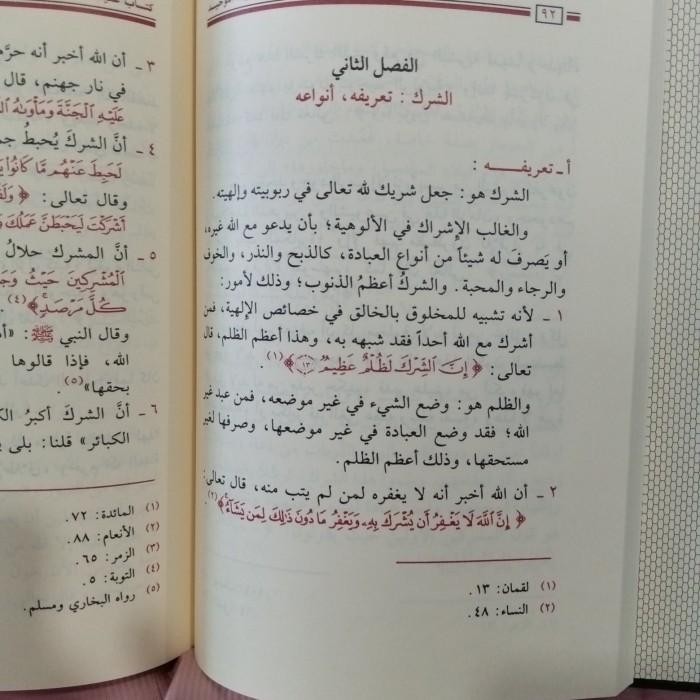 ٩٢
الفصل الثاني
الشرك : تعريفه، أنواعه
أ ـ تعريفـــه :
الشرك هو: جعل شريك لله تعالى في ربوبيته وإلهيته.
والغالب الإشراك في الألوهية؛ بأن يدعو مع الله غيره،
أو يَصرفَ له شيئاً من أنواع العبادة، كالذبح والنذر، والخوف
والرجاء والمحبة. والشركُ أعظمُ الذنوب؛ وذلك لأمور:
١ ـ لأنه تشبيه للمخلوق بالخالق في خصائص الإلهية، فمن
أشرك مع الله أحداً فقد شبهه به، وهذا أعظم الظلم، قال
تعالى: ﴿إِنَّ الشِّرْكَ لَظُلْمٌ عَظِيمٌ ١٣﴾(١).
والظلم هو: وضع الشيء في غير موضعه، فمن عبد غير
الله؛ فقد وضع العبادة في غير موضعها، وصرفها لغير
مستحقها، وذلك أعظم الظلم.
٢ ـ أن الله أخبر أنه لا يغفره لمن لم يتب منه، قال تعالى:
﴿إِنَّ اللَّهَ لَا يَغْفِرُ أَن يُشْرَكَ بِهِ وَيَغْفِرُ مَا دُونَ ذَٰلِكَ لِمَن يَشَاءُ﴾(٢).
(١) لقمان: ١٣.
(٢) النساء: ٤٨.
٣ ـ أن الله أخبر أنه حرَّم
في نار جهنم، قال
عَلَيْهِ الْجَنَّةَ وَمَأْوَاهُ
٤ ـ أنَّ الشركَ يُحبطُ
لَحَبِطَ عَنْهُم مَّا كَانُوا
وقال تعالى: ﴿
أَشْرَكْتَ لَيَحْبَطَنَّ عَمَلُكَ
٥ ـ أنَّ المشرك حلالُ
الْمُشْرِكِينَ حَيْثُ
كُلَّ مَرْصَدٍ﴾(٤).
وقال النبي ﷺ:
الله، فإذا قالوها
بحقها»(٥).
٦ ـ أنَّ الشركَ أكبرُ
الكبائر» قلنا: بلى
(١) المائدة: ٧٢.
(٢) الأنعام: ٨٨.
(٣) الزمر: ٦٥.
(٤) التوبة: ٥.
(٥) رواه البخاري ومسلم.